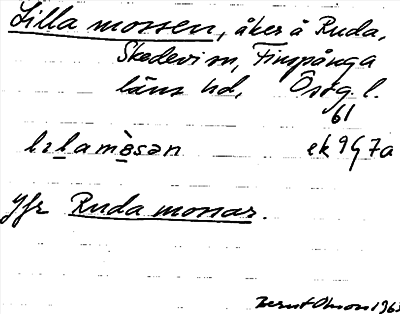 Lilla mossen, åker å Ruda,
Skedevi sn, Finspånga
läns hd, Östg. l.
61
lɩlamòsən ek 9G7a
Jfr Ruda mossar.
Bernt Olsson 1963